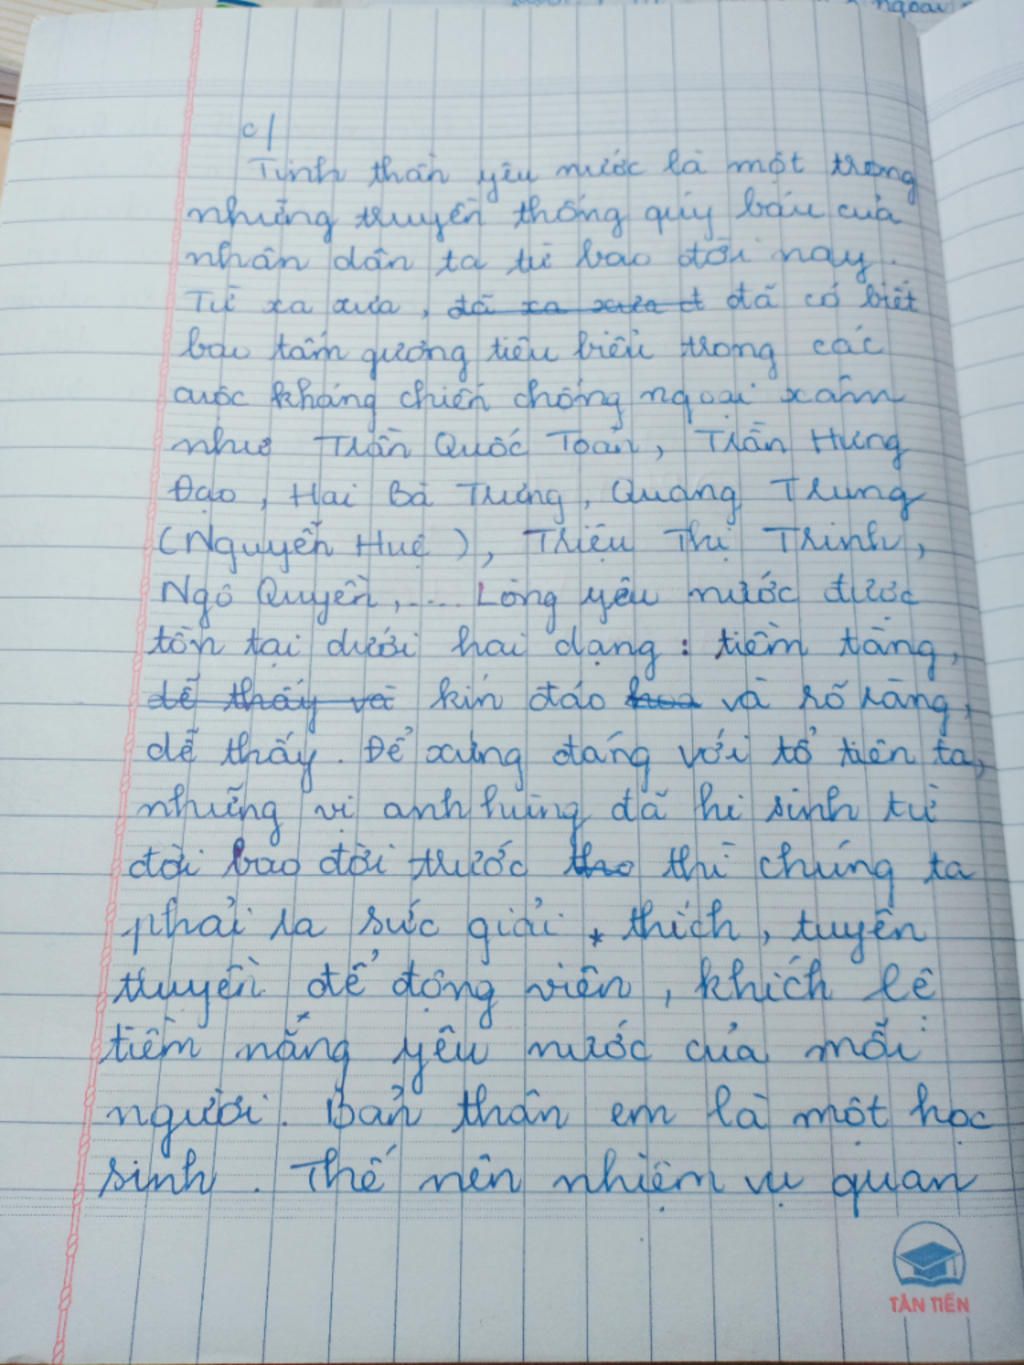 ngoai
c/
Tinh thần yêu nước là một trong
những truyền thống quý báu của
nhân dân ta từ bao đời nay.
Từ xa xưa, đã xa xưa đ đã có biết
bao tấm gương tiêu biểu trong các
cuộc kháng chiến chống ngoại xâm
như Trần Quốc Toản, Trần Hưng
Đạo, Hai Bà Trưng, Quang Trung
(Nguyễn Huệ), Triệu Thị Trinh,
Ngô Quyền,.... Lòng yêu nước được
tồn tại dưới hai dạng: tiềm tàng,
dễ thấy và kín đáo và rõ ràng,
dễ thấy. Để xứng đáng với tổ tiên ta,
những vị anh hùng đã hi sinh từ
đời bao đời trước tho thì chúng ta
phải ra sức giải thích, tuyên
truyền để động viên, khích lệ
tiềm năng yêu nước của mỗi
người. Bản thân em là một học
sinh. Thế nên nhiệm vụ quan
TÂN TIẾN